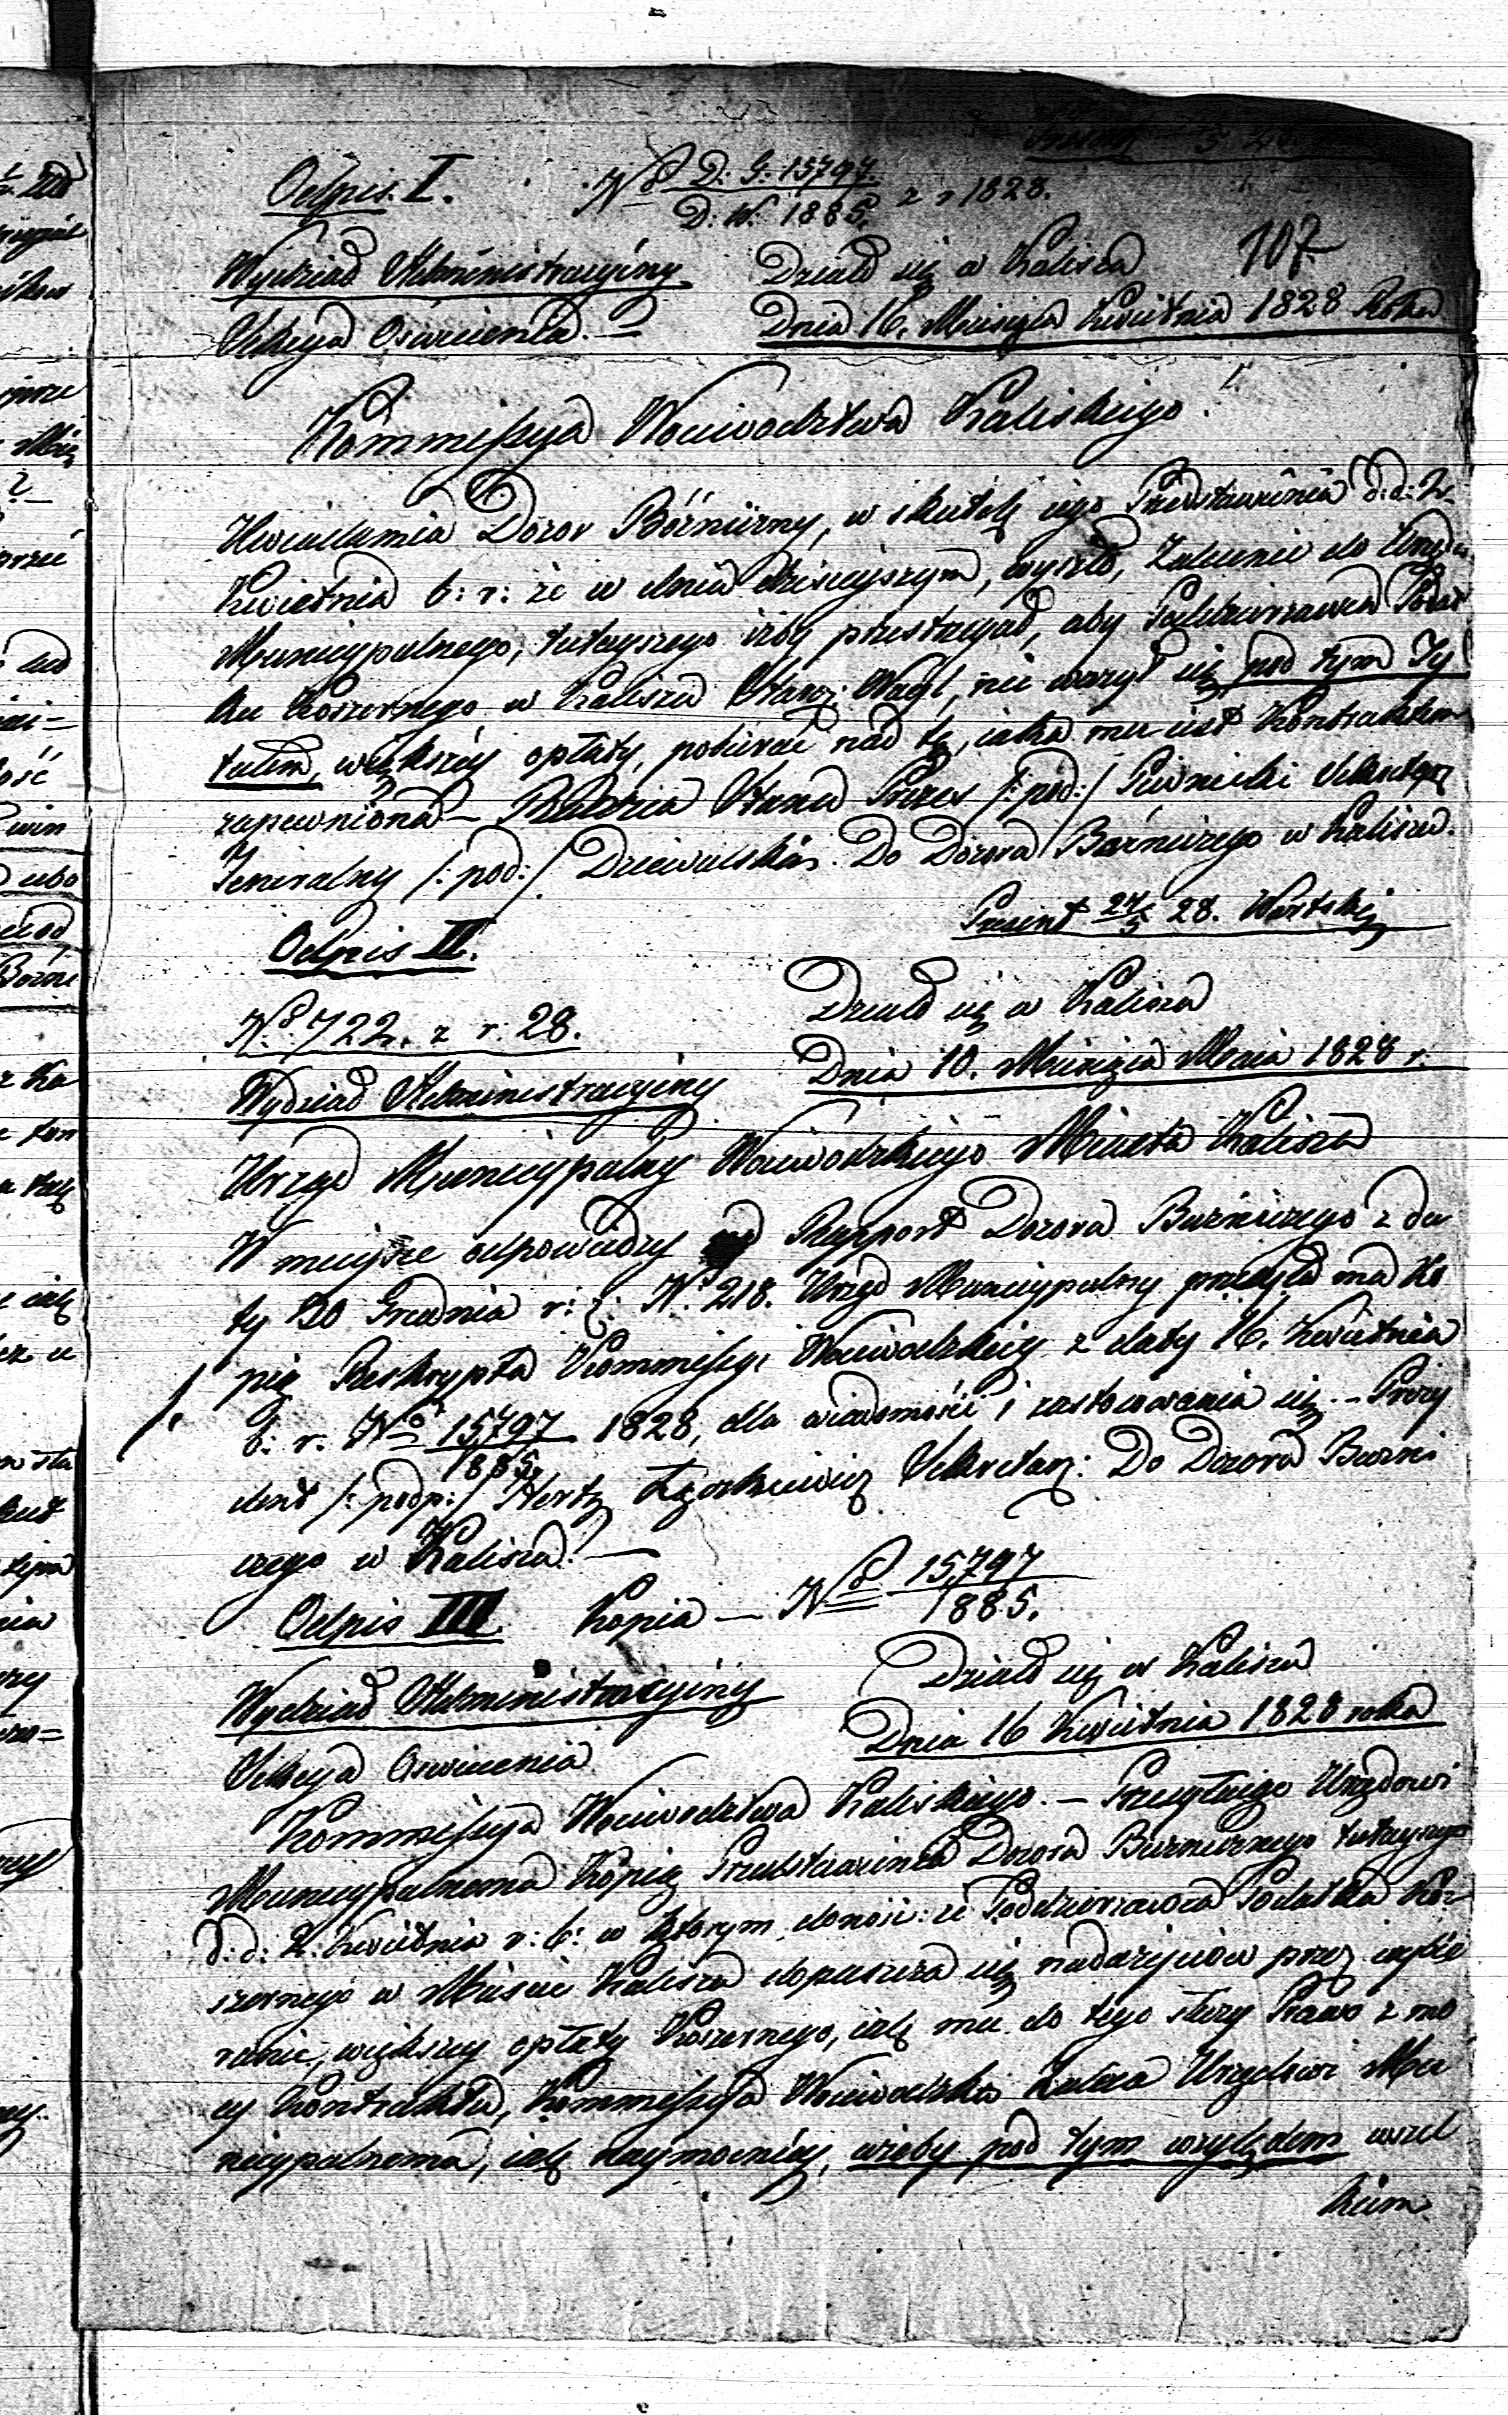 Odpis. I. No D: G: 15797. z r 1828.
D: W: 1885.
107.
Wydział Administracyiny Działo się w Kaliszu
Sekcya Oświecenia. Dnia 16. Miesiąca Kwietnia 1828 Roku
Kommissya Woiewodztwa Kaliskiego
Uwiadamia Dozor Bóźniczny, w skutek iego Przedstawienia d: d: 2
Kwietnia b: r: że w dniu dzisieyszym, wyszło, Zalecenie do Urzędu
Municypalnego, tuteyszego iżby przestrzegał, aby Poddzierzawca Podat
ku Koszernego w Kaliszu nie ważył się pod tym Ty
tułem, większéy opłaty, pobierać nad tę, iaka mu iest Kontraktem
zapewniona – Radzca Stanu Prezes /: pod: / Piwnicki Sekretarz
Jeneralny /: pod: / Dziewulski. Do Dozoru Bóźniczego w Kaliszu.
Odpis II. Present 24/5 28. Wartski
No 722. z r: 28. Działo się w Kaliszu
Wydział Administracyiny Dnia 10. Miesiąca Maia 1828 r.
Urząd Municypalny Woiewodzkiego Miasta Kalisza
W mieysce odpowiedzy na Rapport Dozoru Buźniczego z da
ty 20 Grudnia r: z: No 218. Urząd Municypalny przesyła mu Ko
pią Reskryptu Kommissyi Woiewodzkiey z daty 16. Kwietnia
b: r. No 15,797 1828, dla wiadomości i zastosowania się. – Prezy
1885.
dent /: podp: / Hertz Sekretarz: Do Dozoru Buźni
czego w Kaliszu. –
Odpis III Kopia – No 15,797
1885.
Wydział Administracyiny Działo się w Kaliszu
Sekcya Oswiecenia Dnia 16 Kwietnia 1828 roku
Kommissya Woiewodztwa Kaliskiego. – Przesyłaiąc Urzędowi
Municypalnemu Kopią Przedstawienia Dozoru Buźnicznego tuteyszego
d: d: 2. Kwietnia r: b: w którym donosi: że Poddzierzawca Podatku Ko-
szernego w Mieście Kaliszu dopuszcza się nadużyciów przez wybie
ranie, większey opłaty Koszernego, iak mu do tego służy Prawo z mo
cy Kontraktu, Kommissya Woiewodzka Zaleca Urzędowi Mu
nicypalnemu, iak naymocniey, ażeby pod tym względem wszel
kiem.